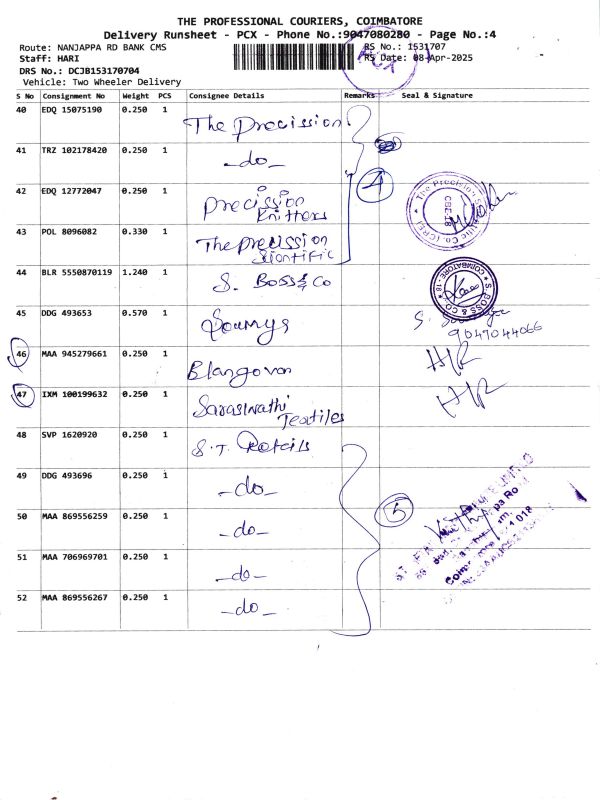 THE PROFESSIONAL COURIERS, COIMBATORE
Delivery Runsheet - PCX - Phone No.:9047080280 - Page No.:4
Route: NANJAPPA RD BANK CMS
RS No.: 1531707
Staff: HARI
RS Date: 08-Apr-2025
DRS No.: DCJB153170704
Vehicle: Two Wheeler Delivery
S No Consignment No Weight PCS Consignee Details Remarks Seal & Signature
40 EDQ 15075190 0.250 1 The Precission
41 TRZ 102178420 0.250 1 -do-
42 EDQ 12772047 0.250 1 precission
Knitters
4
43 POL 8096082 0.330 1 The precission
Scientific
44 BLR 5550870119 1.240 1 S. Boss & Co
S. BOSS & CO
COIMBATORE - 18
45 DDG 493653 0.570 1 Soumya
9047044066
46 MAA 945279661 0.250 1 Blangovan H/R
47 IXM 100199632 0.250 1 Saraswathi
Textiles
H/R
48 SVP 1620920 0.250 1 S.T. Retails
49 DDG 493696 0.250 1 -do-
50 MAA 869556259 0.250 1 -do-
5
51 MAA 706969701 0.250 1 -do-
52 MAA 869556267 0.250 1 -do-